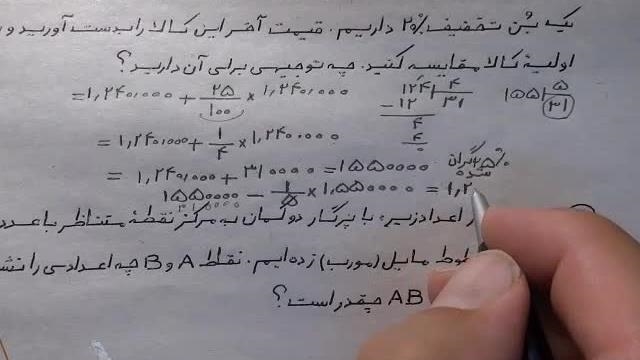 یک بُن تخفیف ۲۰٪ داریم. قیمت آخر این کالا را بدست آورید و
اولیهٔ کالا مقایسه کنید. چه توجیهی برای آن دارید؟
= ۱,۲۴۰,۰۰۰ + ۲۵/۱۰۰ × ۱,۲۴۰,۰۰۰
۱۲۴ | ۴
- ۱۲ ۳۱
۴
۴
۰
۱۵۵ | ۵
۳۱
= ۱,۲۴۰,۰۰۰ + ۱/۴ × ۱,۲۴۰,۰۰۰
= ۱,۲۴۰,۰۰۰ + ۳۱۰۰۰۰ = ۱۵۵۰۰۰۰
۲۵٪ گران
شده
۱۵۵۰۰۰۰ - ۱/۵ × ۱,۵۵۰۰۰۰ = ۱,۲
اعداد زیر، با پرگار دو کمان به مرکز نقطهٔ متناظر با عدد
خطوط مایل (مورب) زده‌ایم. نقاط A و B چه اعدادی را نشا
AB چقدر است؟